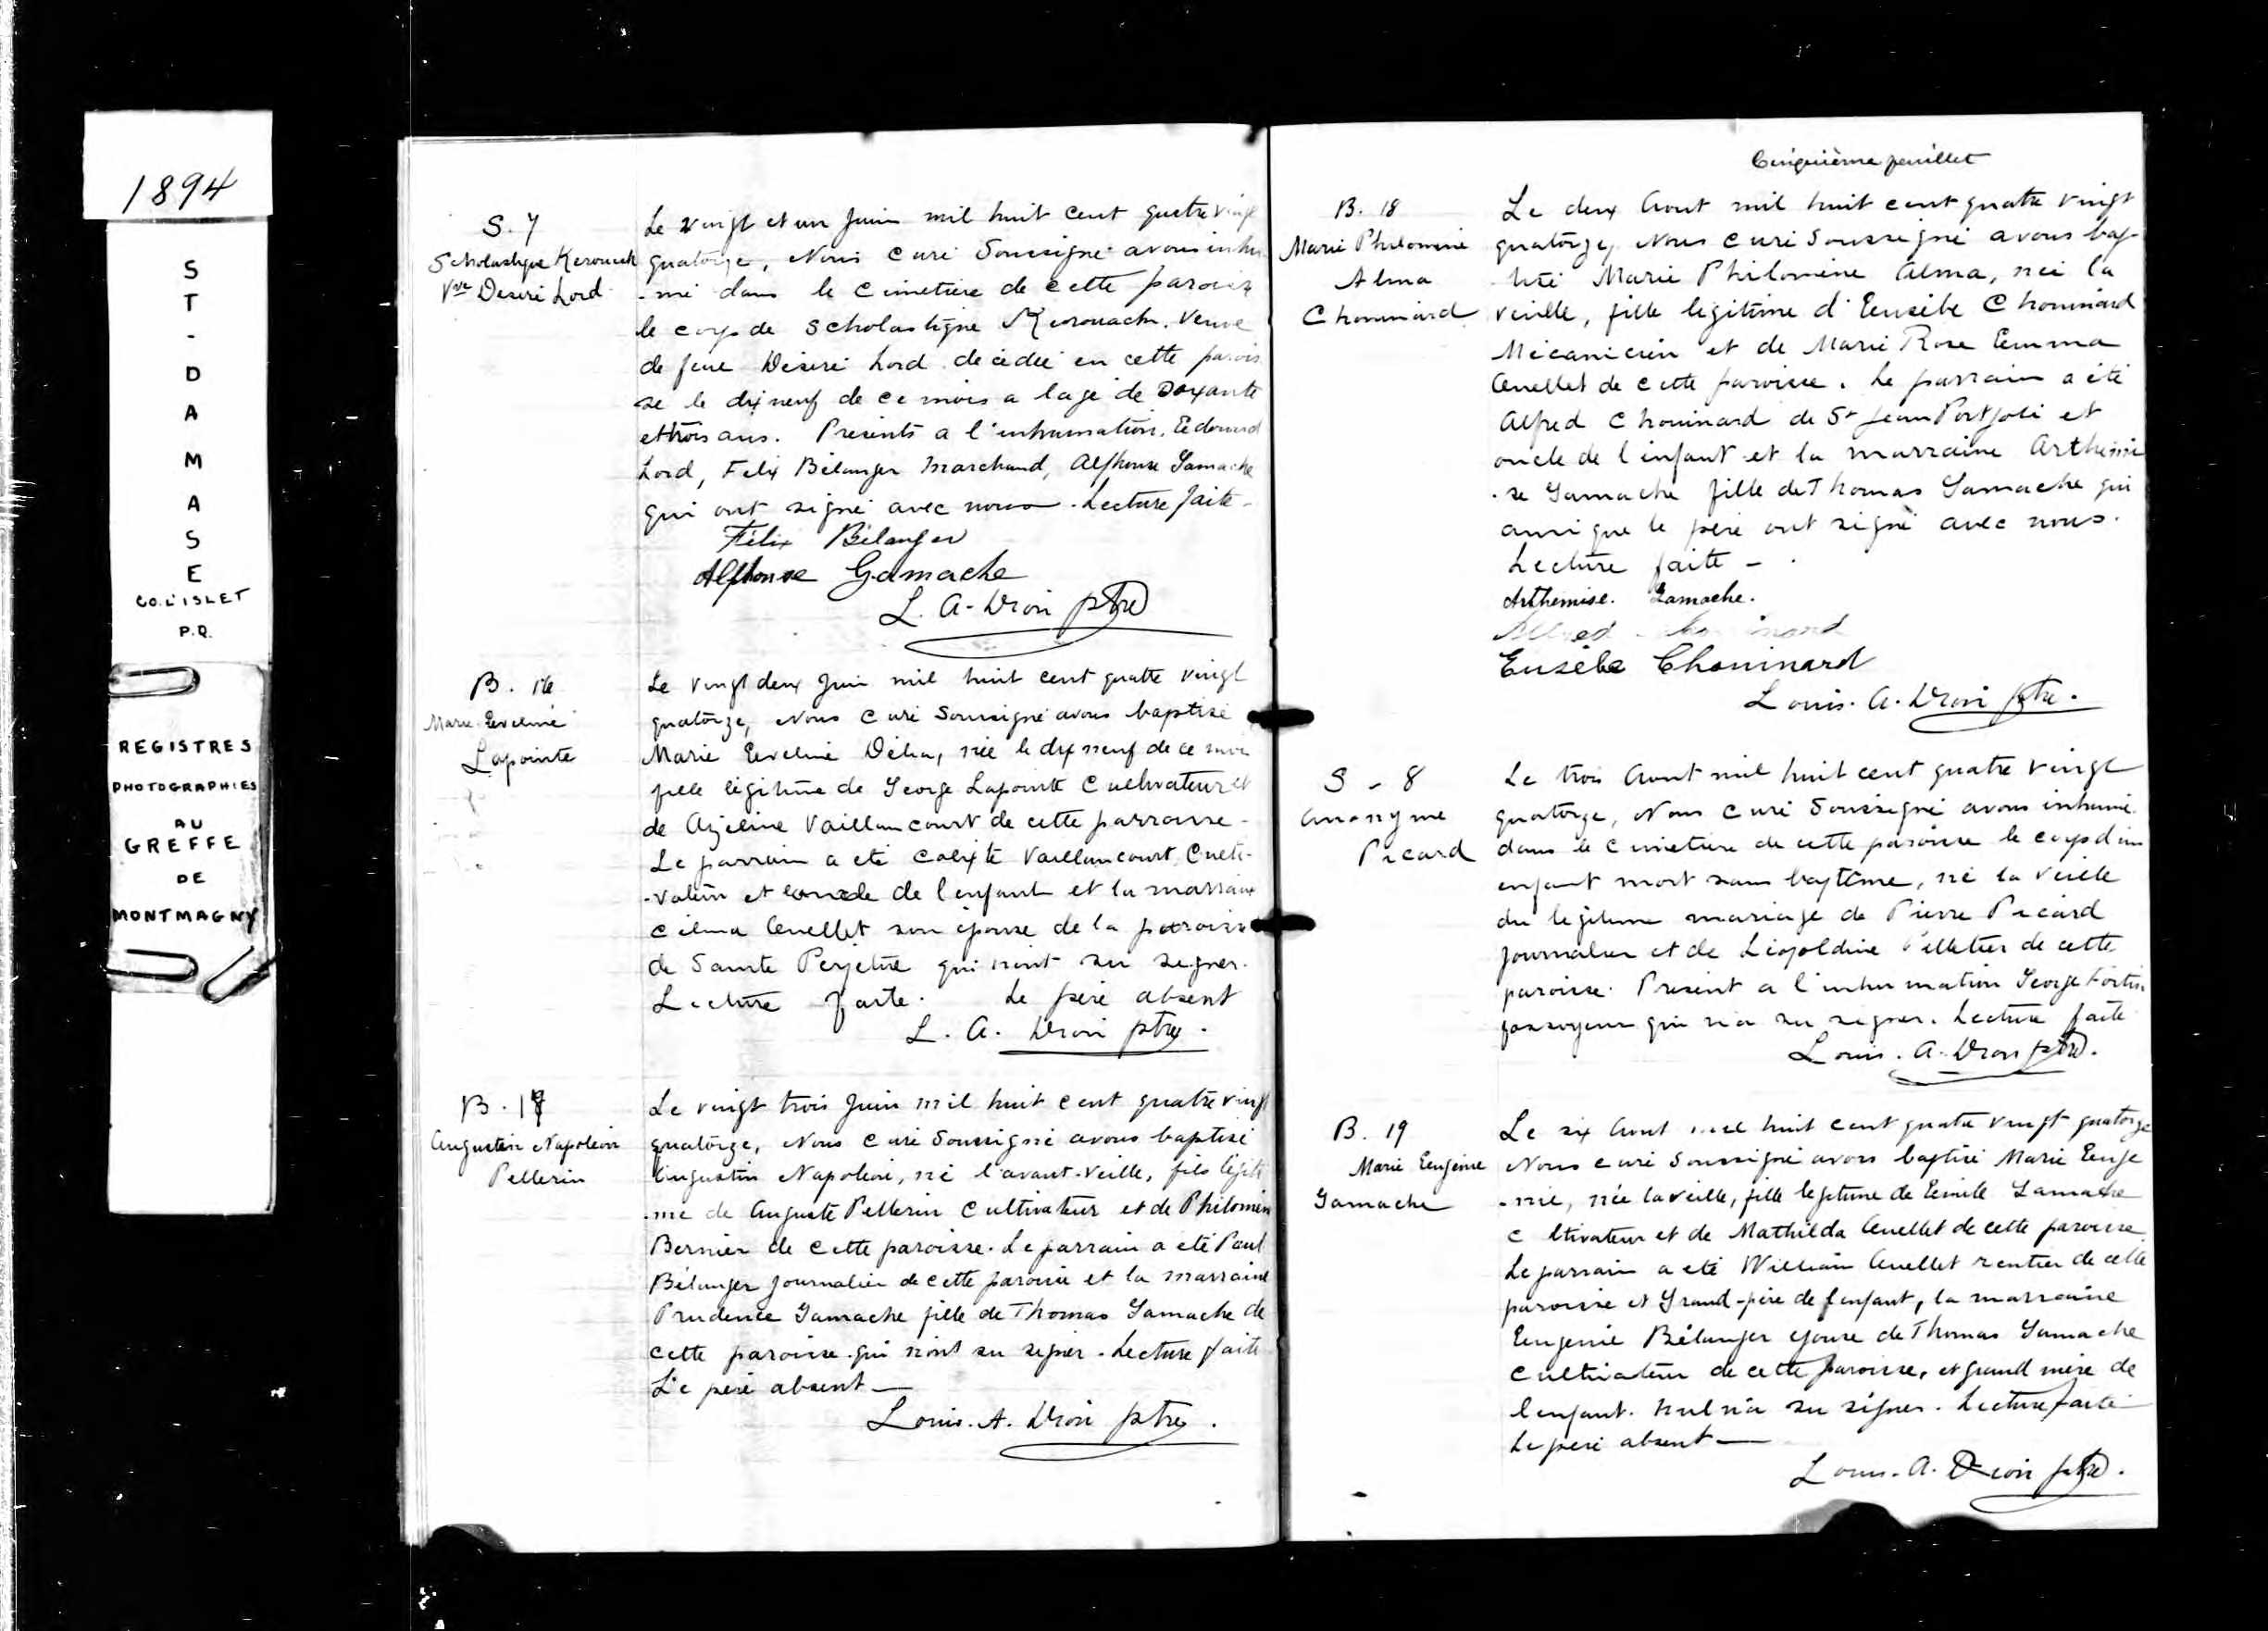 1894
ST-DAMASE
CO. L'ISLET
P.Q.
REGISTRES
PHOTOGRAPHIES
AU
GREFFE
DE
MONTMAGNY
S. 7
Scholastique Kerouack
Vve Desiré Lord
Le vingt et un Juin mil huit cent quatre vingt
quatorze, Nous Curé Soussigné avons inhu
-mé dans le cimetiere de cette paroiss
le corps de Scholastique Kerouack. Veuve
de feue Désiré Lord. décédée en cette parois
se le dix neuf de ce mois a lage de soixante
et trois ans. Présents a l'inhumation. Edouard
Lord, Felix Bélanger Marchand, Alphonse Gamache
qui ont signé avec nous. Lecture faite -
Félix Bélanger
Alphonse Gamache
L. A. Dion ptre
B. 16
Marie Eveline
Lapointe
Le vingt deux Juin mil huit cent quatre vingt
quatorze, Nous Curé Soussigné avons baptisé
Marie Eveline Délia, née le dix neuf de ce mois
fille légitime de George Lapointe Cultivateur et
de Azeline Vaillancourt de cette parroisse -
Le parrain a eté Calixte Vaillancourt Culti-
-vateur et oncle de l'enfant et la marraine
Célina Ouellet son épouse de la paroisse
de Sainte Perpétue qui n'ont su signer.
Lecture faite. Le père absent
L. A. Dion ptre.
B. 17
Augustin Napoléon
Pellerin
Le vingt trois Juin mil huit cent quatre vingt
quatorze, Nous Curé Soussigné avons baptisé
Augustin Napoléon, né l'avant-veille, fils légiti
-me de Auguste Pellerin Cultivateur et de Philomèn
Bernier de cette paroisse. Le parrain a eté Paul
Bélanger Journalier de cette paroisse et la marraine
Prudence Gamache fille de Thomas Gamache de
cette paroisse. qui n'ont su signer. Lecture faite
Le père absent —
Louis. A. Dion ptre.
Cinquième feuillet
B. 18
Marie Philomène
Alma
Chouinard
Le deux Aout mil huit cent quatre vingt
quatorze, Nous Curé Soussigné avons bap-
-tisé Marie Philomène Alma, née la
veille, fille legitime d'Eusèbe Chouinard
Mécanicien et de Marie Rose Emma
Ouellet de cette paroisse. Le parrain a été
Alfred Chouinard de St Jean Port Joli et
oncle de l'enfant et la marraine Arthémi
-se Gamache fille de Thomas Gamache qui
ainsi que le père ont signé avec nous.
Lecture faite -
Arthemise. Gamache.
Alfred Chouinard
Eusèbe Chouinard
Louis. A. Dion ptre.
S - 8
Anonyme
Picard
Le trois Aout mil huit cent quatre vingt
quatorze, Nous Curé Soussigné avons inhumé
dans le cimetiere de cette paroisse le corps d'un
enfant mort sans baptême, né la veille
du legitime mariage de Pierre Picard
Journalier et de Léopoldine Pelletier de cette
paroisse. Présent a l'inhumation George Fortin
fossoyeur qui n'a su signer. Lecture faite
Louis. A. Dion ptre.
B. 19
Marie Eugénie
Gamache
Le six Aout mil huit cent quatre vingt quatorze
Nous curé Soussigné avons baptisé Marie Euge
-nie, née la veille, fille legitime de Emile Gamache
c ltivateur et de Mathilda Ouellet de cette paroisse
Le parrain a eté William Ouellet rentier de cette
paroisse et Grand-père de l'enfant, la marraine
Eugenie Bélanger épouse de Thomas Gamache
Cultivateur de cette paroisse, et grand mère de
l'enfant. nul n'a su signer. Lecture faite -
Le père absent —
Louis. A. Dion ptre.